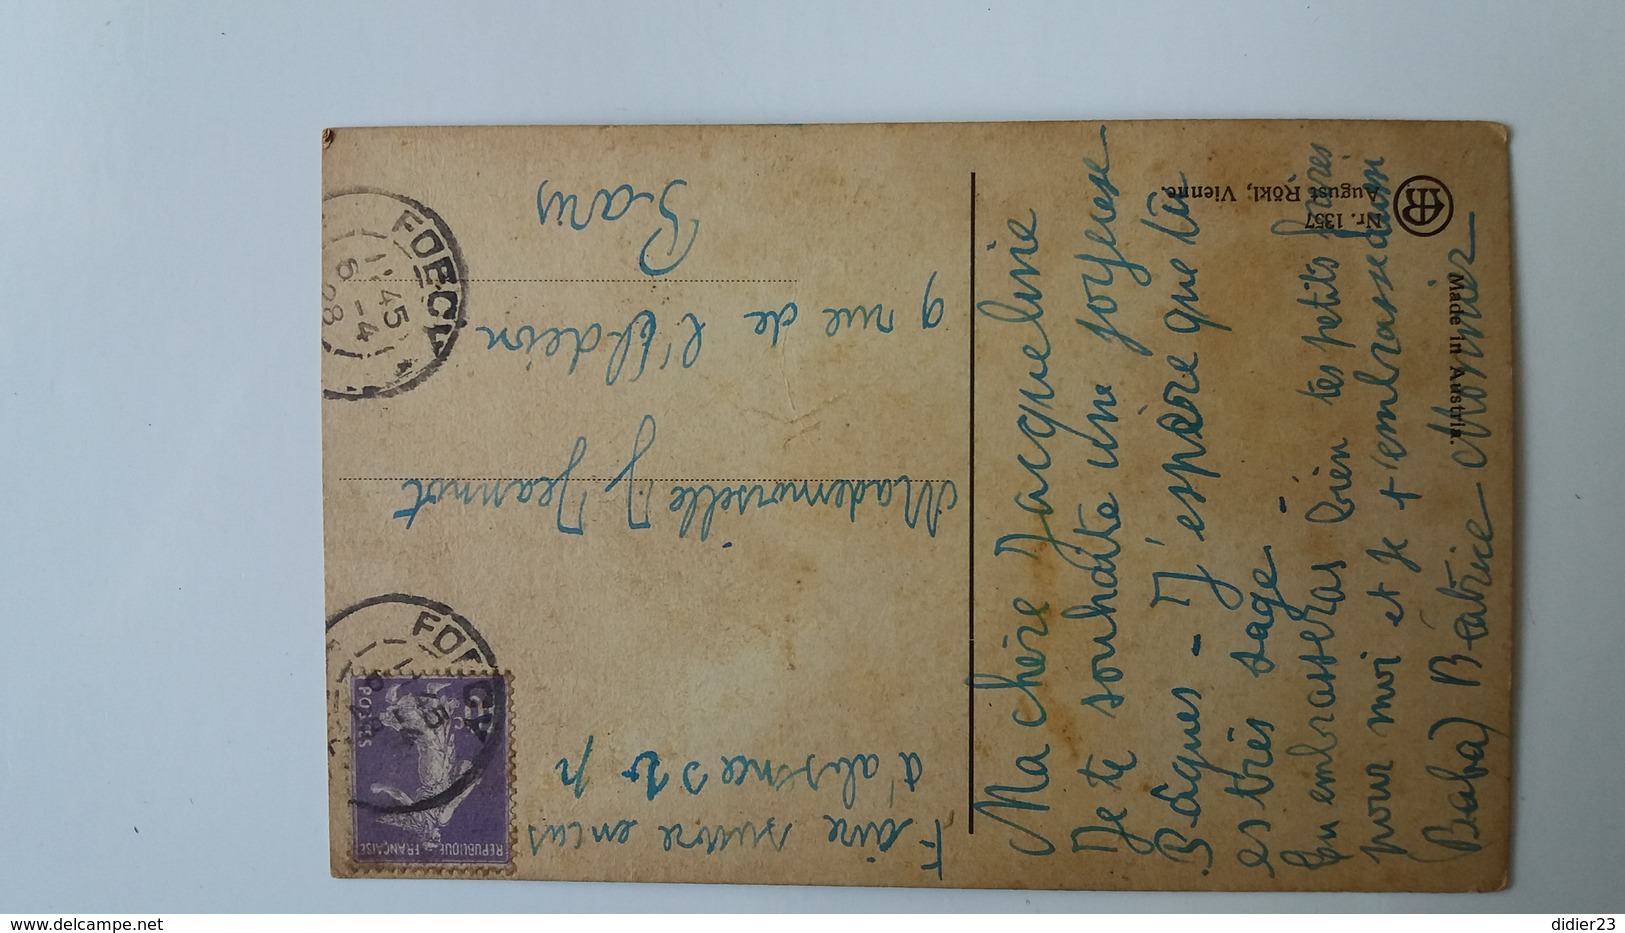 Ma chère Jacqueline
Je te souhaite une joyeuse
Pâques - J'espère que tu
es très sage -
Tu embrasseras bien tes petits frères
pour moi et je t'embrasse
(Baba) Béatrice
Made in Austria.
Nr. 1357
August Rökl, Vienne.
Faire suivre en cas
d'absence s v p
Mademoiselle J Jeannot
9 rue de l'
Paris
FOECY
45
6 - 4
28
FOECY
45
POSTES
REPUBLIQUE FRANÇAISE
didier23